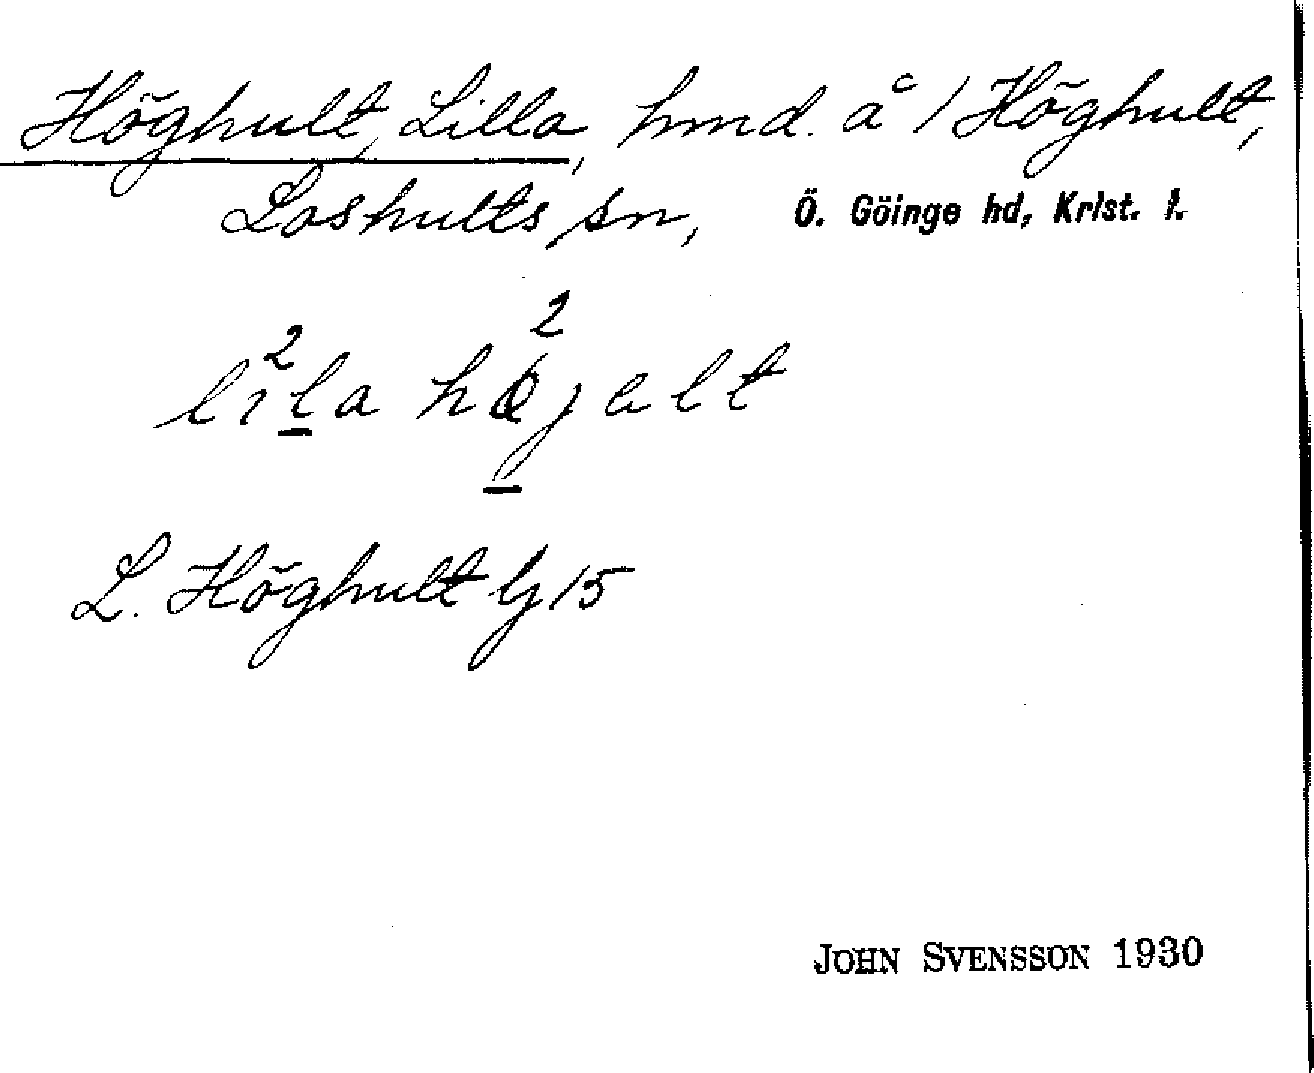 Höghult, Lilla, hmd. å 1 Höghult,
Loshults sn, Ö. Göinge hd, Krist. l.
li²la hö²jalt
L. Höghult Gj 15
JOHN SVENSSON 1930